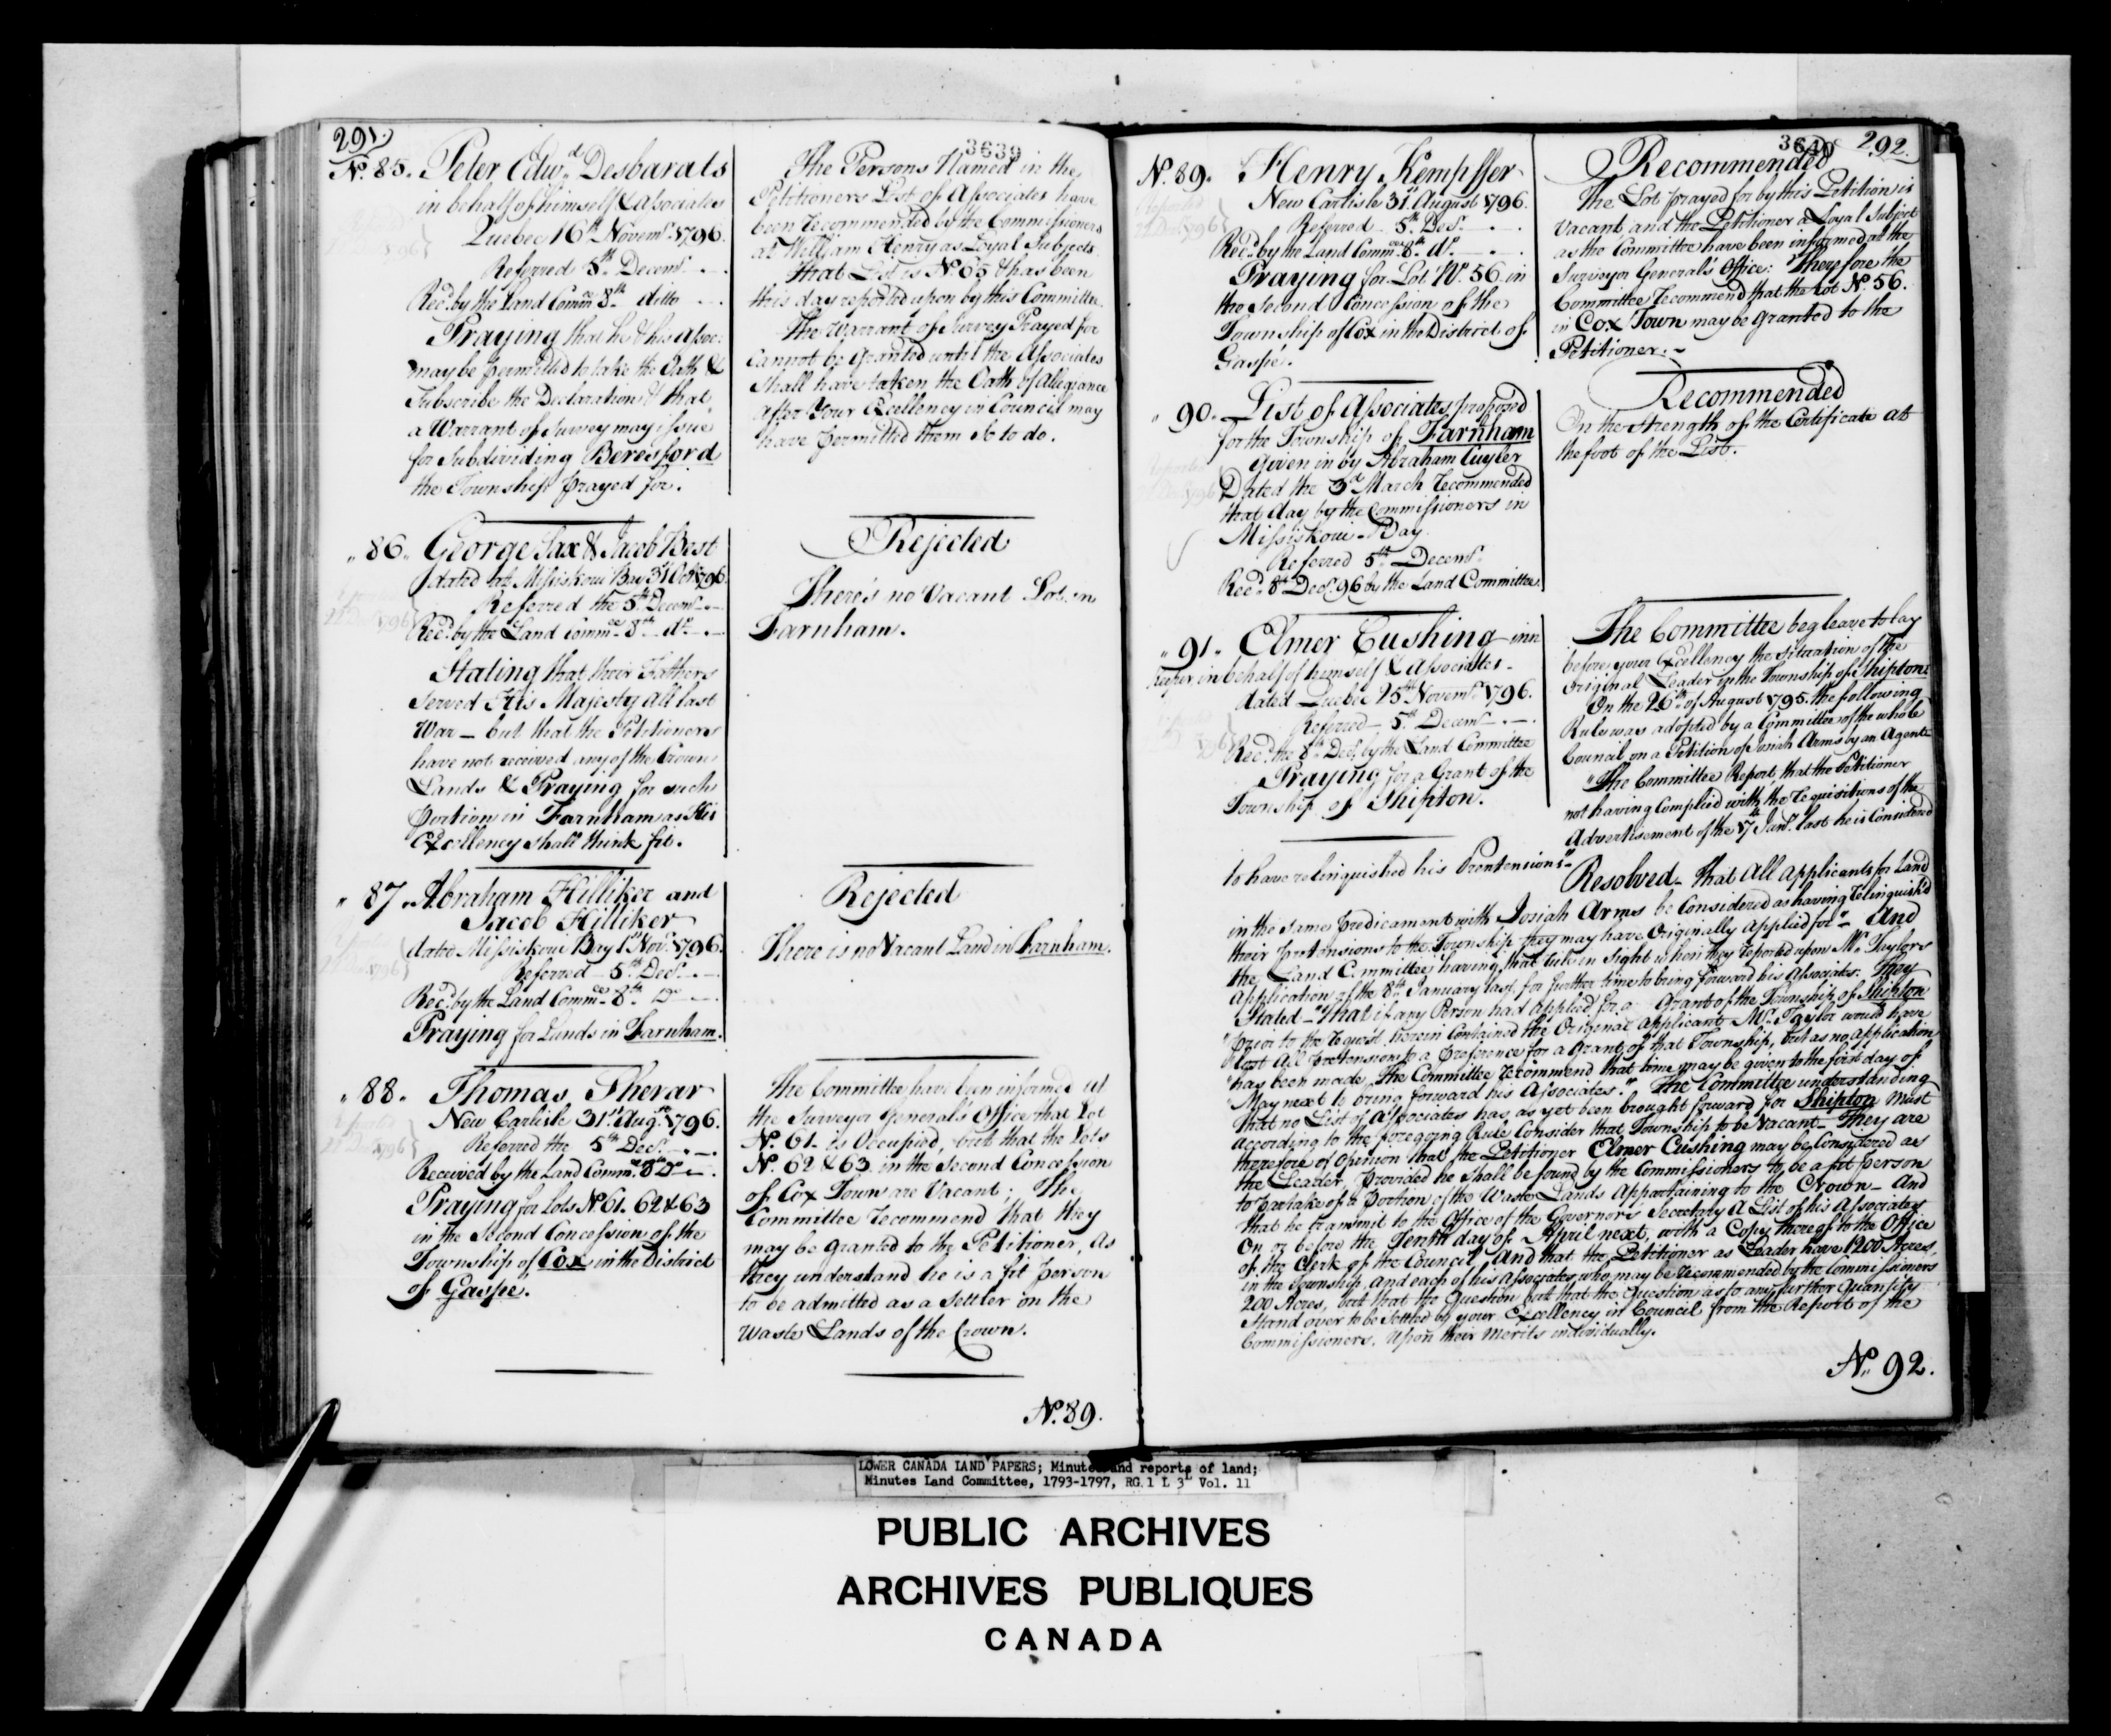 291.
3639
No. 85. Peter Edwd. Desbarats
in behalf of himself & associates
Quebec 16th Novemr. 1796.
Referred 5th Decemr.
Recd. by the Land Commee. 8th ditto
Praying that he & his Assoc:
may be permitted to take the Oath &
Subscribe the Declaration & that
a Warrant of Survey may issue
for Subdividing Beresford
the Township prayed for.
The Persons Named in the
Petitioners List of Associates have
been recommended by the Commissioners
at William Henry as Loyal Subjects.
That List is No 65 & has been
this day reported upon by this Committee.
The Warrant of Survey Prayed for
cannot be granted until the Associates
shall have taken the Oath of Allegiance
after Your Excellency in Council may
have permitted them so to do.
" 86. George Sax & Jacob Best
dated at Missiskoui Bay 31 Octr. 1796.
Referred the 5th Decemr.
Recd. by the Land Commee. 8th do.
Stating that their Fathers
served His Majesty all last
War - but that the Petitioners
have not received any of the Crown
Lands & Praying for such
Portion in Farnham as His
Excellency shall think fit.
Rejected
There's no Vacant Lot in
Farnham.
" 87. Abraham Hilliker and
Jacob Hilliker
dated Missiskoui Bay 1st Novr. 1796.
Referred 5th Decr.
Recd. by the Land Commee. 8th Do
Praying for Lands in Farnham.
Rejected
There is no Vacant Land in Farnham.
" 88. Thomas Sherar
New Carlisle 31st Augst. 1796.
Referred the 5th Decr.
Received by the Land Commee. 8th Do
Praying for Lots No 61. 62 & 63
in the Second Concession of the
Township of Cox in the District
of Gaspe.
The Committee have been informed at
the Surveyor General's Office that Lot
No. 61. is Occupied, but that the Lots
No. 62 & 63 in the Second Concession
of Cox Town are Vacant; The
Committee recommend that they
may be granted to the Petitioner, As
they understand he is a fit person
to be admitted as a Settler on the
Waste Lands of the Crown.
No. 89.
3640
292.
No. 89. Henry Kempffer
New Carlisle 31st August 1796.
Referred 5th Decr.
Recd. by the Land Commee. 8th do.
Praying for Lot No. 56 in
the Second Concession of the
Township of Cox in the District of
Gaspé.
Recommended
The Lot prayed for by this Petition is
vacant and the Petitioner a Loyal Subject
as the Committee have been informed at the
Surveyor General's Office: Therefore the
Committee recommend that the Lot No. 56.
in Cox Town may be granted to the
Petitioner.
" 90. List of Associates proposed
for the Township of Farnham
Given in by Abraham Cuyler
Dated the 3d March recommended
that day by the Commissioners in
Missiskoui-Bay
Referred 5th Decemr.
Recd. 8th Decr. 96 by the Land Committee.
Recommended
On the strength of the Certificate at
the foot of the List.
" 91. Elmer Cushing inn
keeper in behalf of himself & Associates
dated Quebec 25th Novemr. 1796.
Referred 5th Decemr.
Recd. the 8th Decr. by the Land Committee
Praying for a Grant of the
Township of Shipton.
The Committee beg leave to lay
before your Excellency the situation of the
Original Leader in the Township of Shipton:
On the 26th of August 1795. the following
Rule was adopted by a Committee of the whole
Council on a Petition of Josiah Arms by an Agent
"The Committee Report that the Petitioner
not having Complied with the requisitions of the
Advertisement of the 17th Janr. last he is Considered
to have relinquished his Pretensions"
Resolved - That All Applicants for Land
in the same predicament with Josiah Arms be Considered as having relinquish'd
their pretensions to the Township they may have Originally Applied for" - And
the Land Committee having that rule in Sight when they reported upon Mr. Taylors
Application of the 8th January last for further time to bring forward his Associates. They
Stated - "That if any Person had Applied for a Grant of the Township of Shipton
"prior to the request herein Contained the Original Applicant Mr. Taylor would have
"lost All pretensions to a preference for a Grant of that Township, but as no application
"has been made, The Committee recommend that time may be given to the first day of
"May next to bring forward his Associates." The Committee understanding
that no List of Associates has as yet been brought forward for Shipton must
according to the foregoing Rule Consider that Township to be Vacant - They are
therefore of Opinion that the Petitioner Elmer Cushing may be Considered as
the Leader, Provided he shall be found by the Commissioners to be a fit person
to partake of a portion of the Waste Lands Appertaining to the Crown - And
that he transmit to the Office of the Governors Secretary A List of his Associates
On or before the Tenth day of April next, with a Copy thereof to the Office
of the Clerk of the Council And that the Petitioner as Leader have 1200 Acres,
in the Township and each of his Associates who may be recommended by the Commissioners
200 Acres, but that the Question but that the Question as to any further Quantity
Stand over to be Settled by your Excellency in Council from the Report of the
Commissioners, Upon their Merits individually.
No. 92.
LOWER CANADA LAND PAPERS; Minutes and reports of land;
Minutes Land Committee, 1793-1797, RG 1 L 3L Vol. 11
PUBLIC ARCHIVES
ARCHIVES PUBLIQUES
CANADA